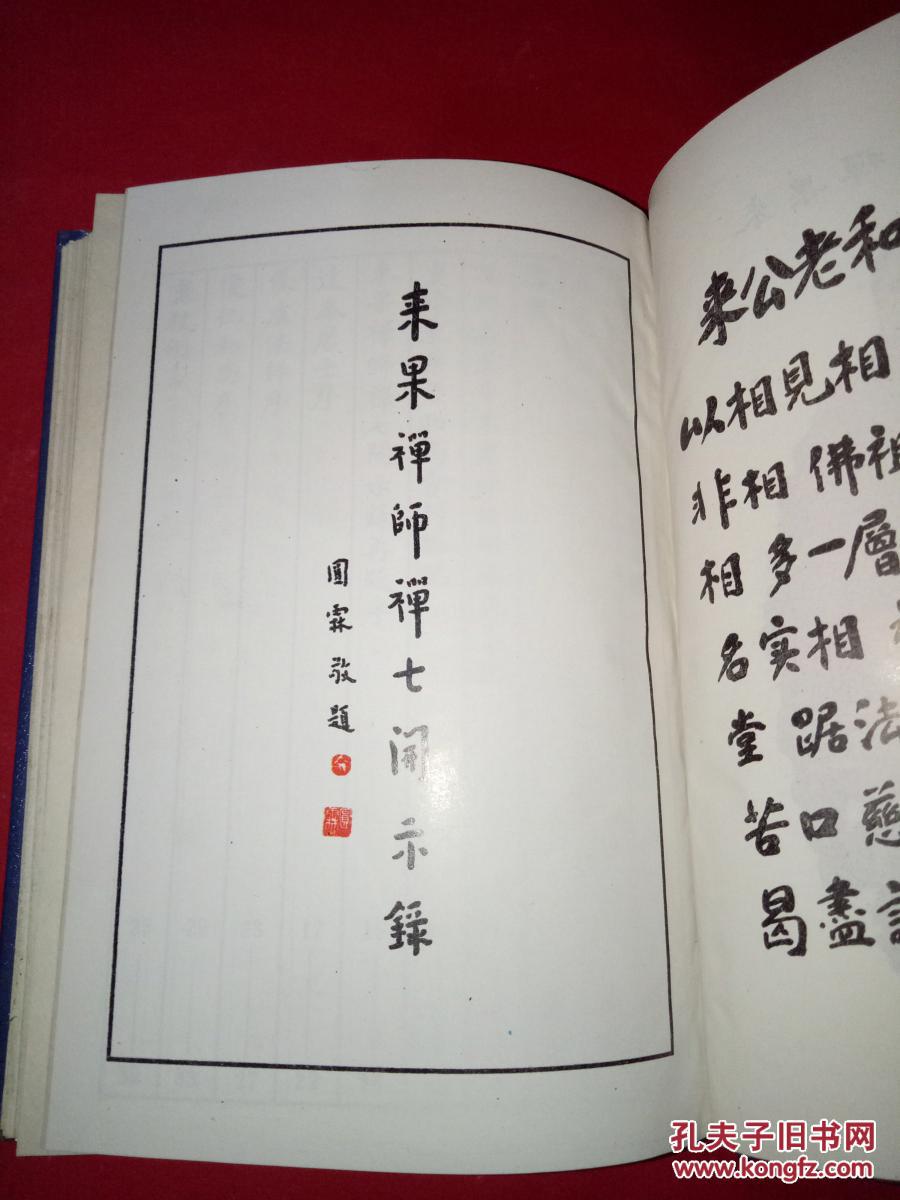 来果禪師禪七開示錄
圓霖敬題
来公老和
以相見相
非相佛祖
相多一層
名实相
堂踞法
苦口慈
曷盡
孔夫子旧书网
www.kongfz.com